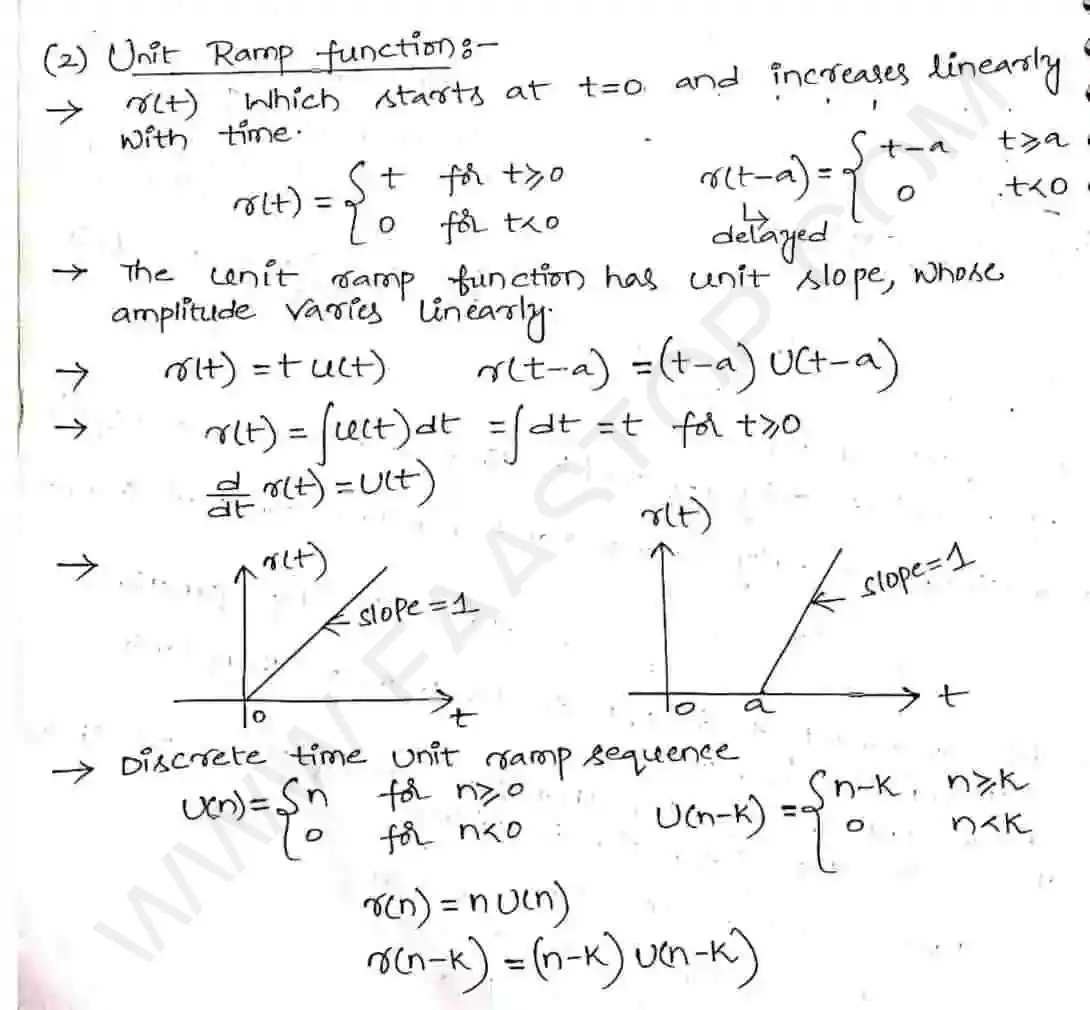 (2) Unit Ramp function:-
→ r(t) which starts at t=0 and increases linearly
with time.
r(t) = { t for t≥0
0 for t<0
r(t-a) = { t-a t≥a
0 t<0
↳ delayed
→ The unit ramp function has unit slope, whose
amplitude varies linearly.
→ r(t) = t u(t) r(t-a) = (t-a) U(t-a)
→ r(t) = ∫u(t)dt = ∫dt = t for t≥0
d/dt r(t) = U(t)
→ r(t)
slope=1
0 t
r(t)
slope=1
0 a t
→ Discrete time unit ramp sequence
U(n) = { n for n≥0
0 for n<0
U(n-k) = { n-k, n≥k
0 n<k
r(n) = n U(n)
r(n-k) = (n-k) U(n-k)
WWW.FAASTOP.COM